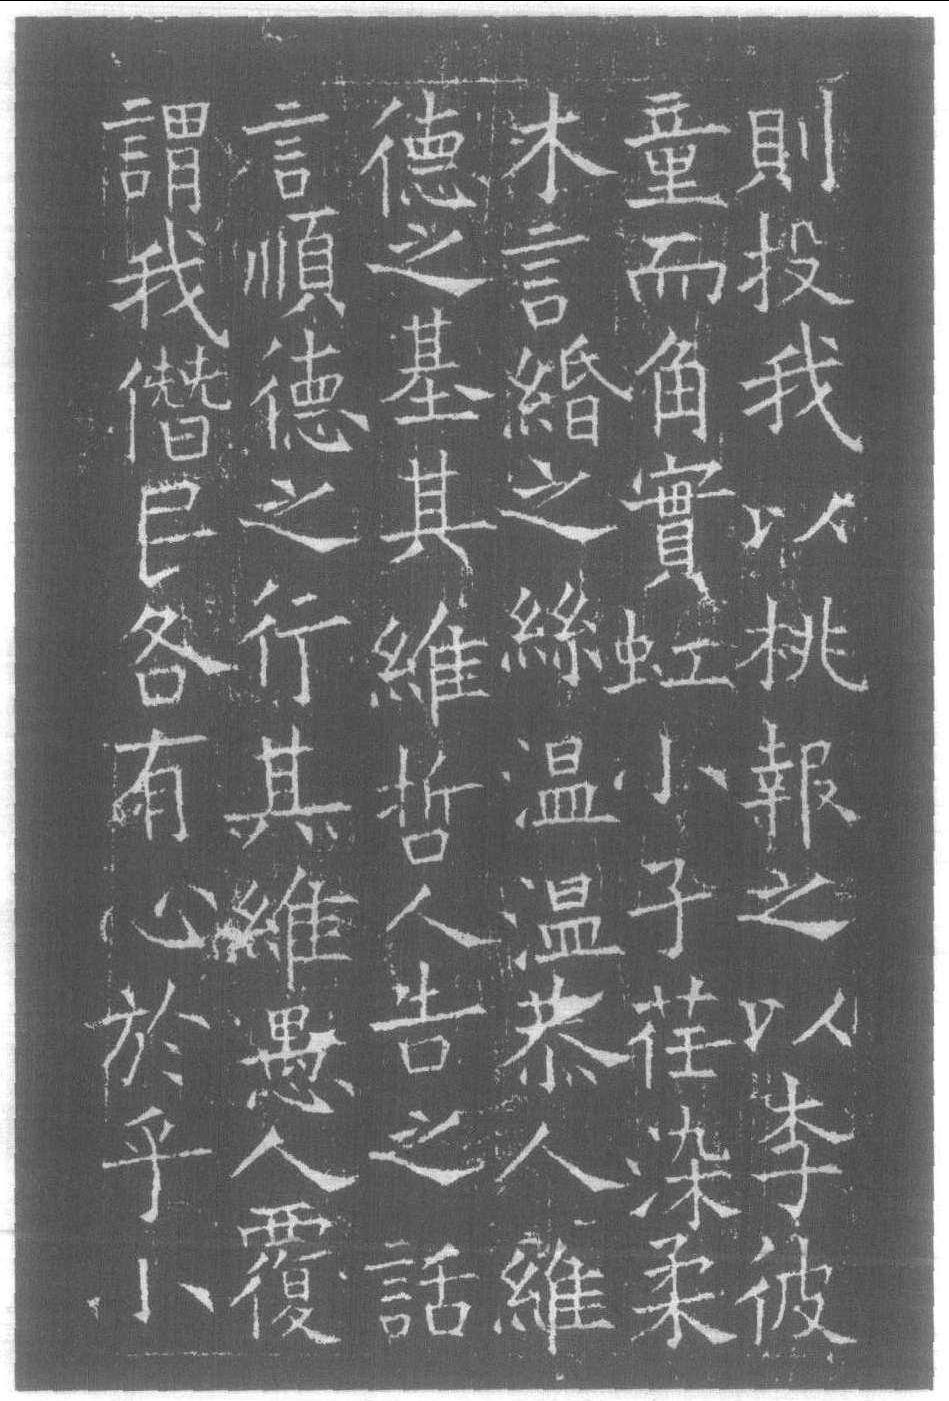 則投我以桃報之以李彼
童而角實虹小子荏染柔
木言緍之絲温温恭人維
德之基其維哲人告之話
言順德之行其維愚人覆
謂我僭民各有心於乎小